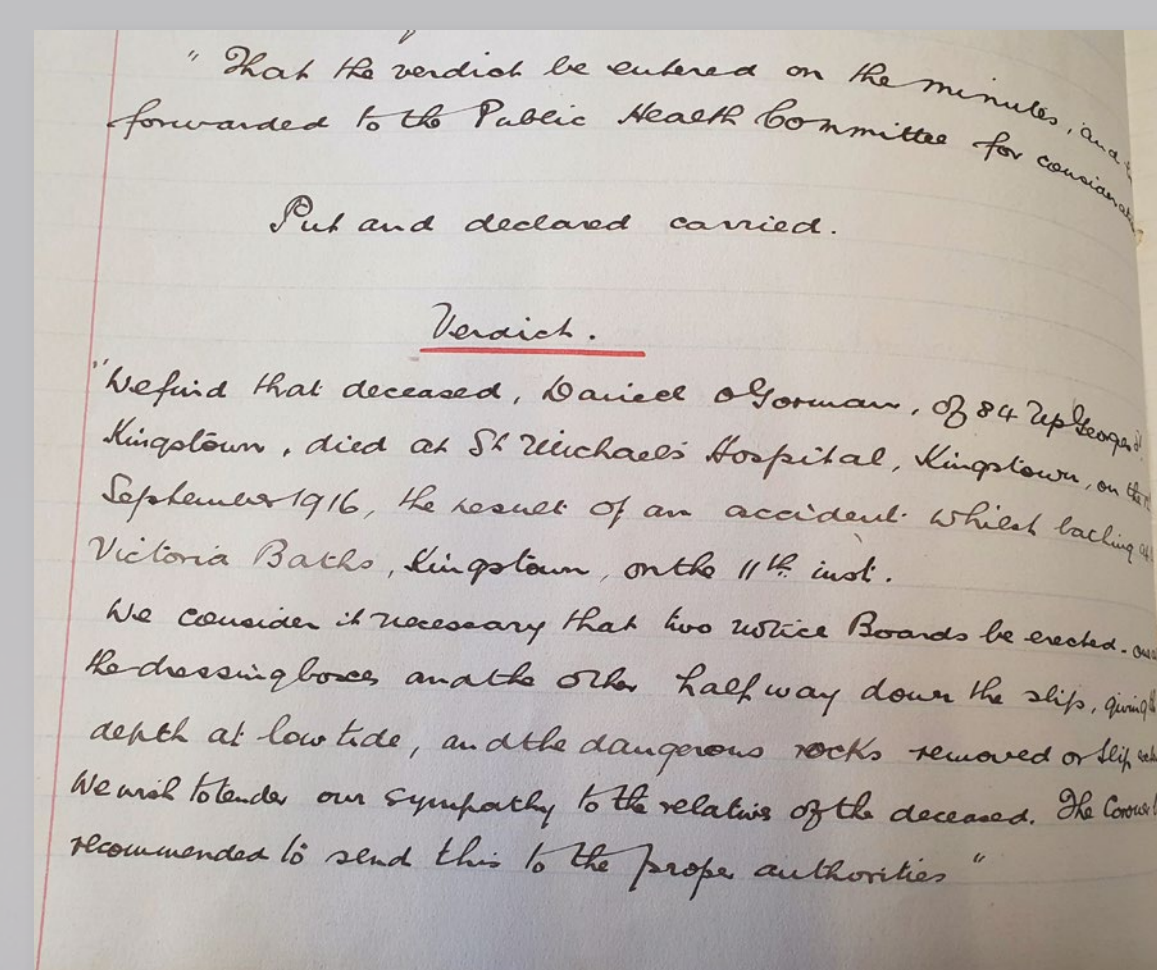 " That the verdict be entered on the minutes, and
forwarded to the Public Health Committee for
Put and declared carried.
Verdict.
"We find that deceased, Daniel O'Gorman, of 84 Up George's St
Kingstown, died at St Michael's Hospital, Kingstown, on the
September 1916, the result of an accident whilst bathing at
Victoria Baths, Kingstown, on the 11th inst.
We consider it necessary that two notice Boards be erected - one
the dressing boxes and the other half way down the slip, giving
depth at low tide, and the dangerous rocks removed or slip
We wish to tender our sympathy to the relatives of the deceased. The Coroner
recommended to send this to the proper authorities "